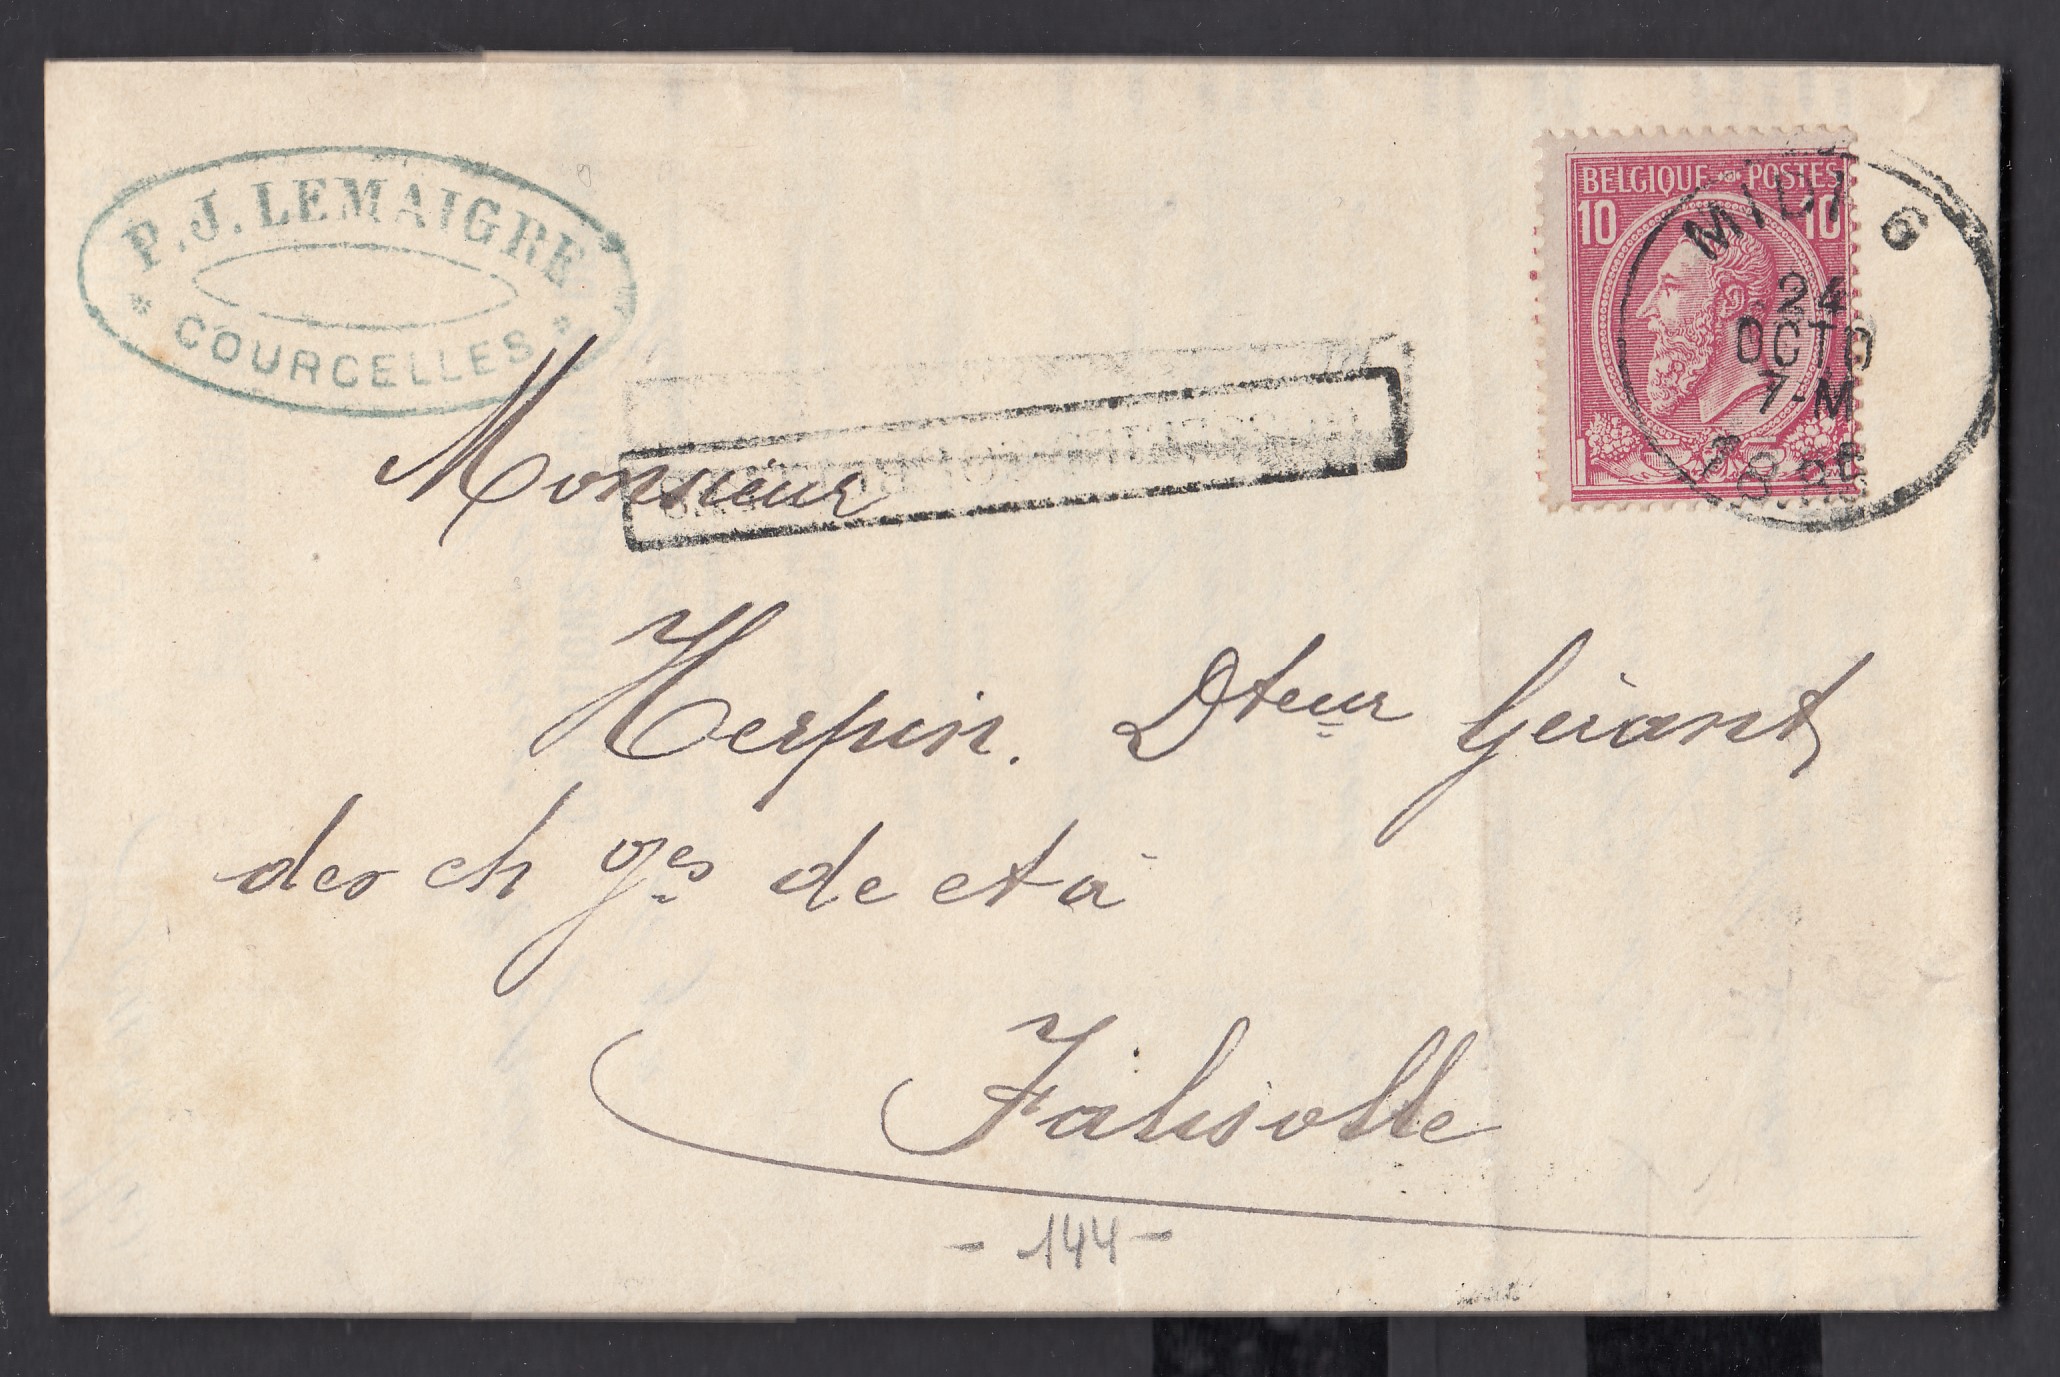 P.J. LEMAIGRE
* COURCELLES *
BELGIQUE POSTES
10 10
MIDI 6
24
OCTO
7-M
1886
Monsieur
Herpin. Dteur Gérant
des ch ges de et à
Falisolle
- 144 -